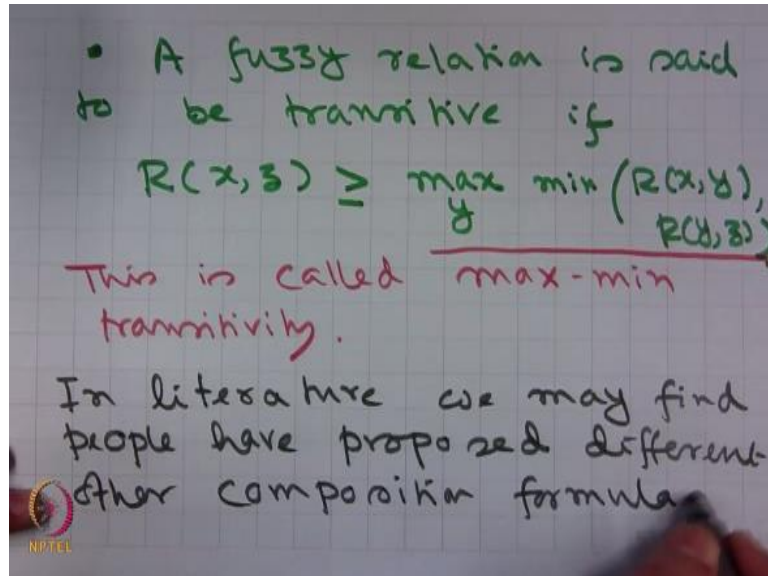 • A fuzzy relation is said
to be transitive if
R(x, z) ≥ max min (R(x, y),
y R(y, z))
This is called max-min
transitivity.
In literature we may find
people have proposed different
other composition formula
NPTEL